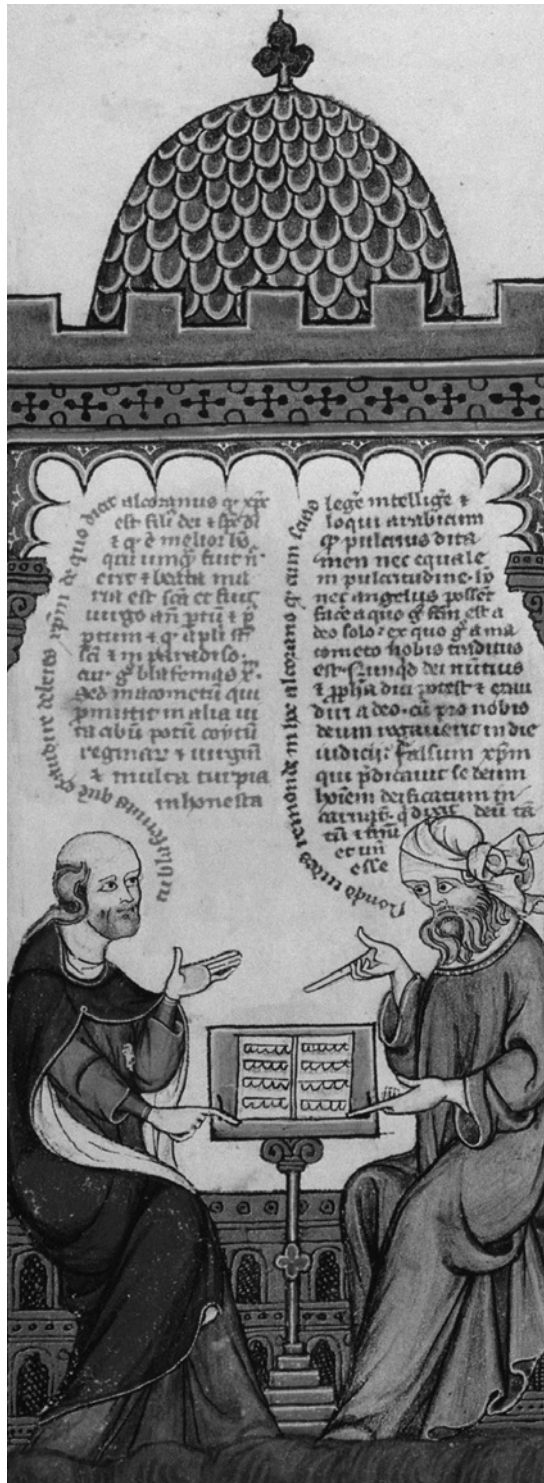 ostendere deberes xp̄m de quo dicit alcoranus q̄ xp̄c
est fili dei ⁊ sp̄c dī
⁊ q̄ ē melior hō
qui umq̄ fuit n̄
erit ⁊ beata ma
ria est sc̄a et fuit
uirgo an̄ ptū ⁊ p̄
ptum ⁊ q̄ apl̄i st̄
sc̄i ⁊ in paradiso
cur g̊ blasfemas x̄
sed macometū qui
pmittit in alia ui
ta cibū potū coytū
reginar ⁊ uirgin̄
⁊ multa turpia
inhonesta
Nondū uides remonde in alcorano q̄ cum scias legē intelligē ⁊
loqui arabicum
q̄ pulcrius dita
men nec equale
in pulcritudine hō
nec angelus posset
facē a quo g̊ est a
deo solo ⁊ ex quo g̊ a ma
cometo nobis traditus
est dei nūtius
⁊ pph̄a dici potest ⁊ exau
diri a deo cū pro nobis
deum rogauerit in die
iudicij Falsum xp̄m
qui p̄dicauit se deum
hoīem deificatum in
q̄ dixit deū tā
tū
et un̄
esse